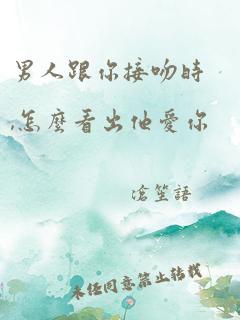 男人跟你接吻時
,怎麼看出他愛你
滄笙語
未經同意禁止轉載